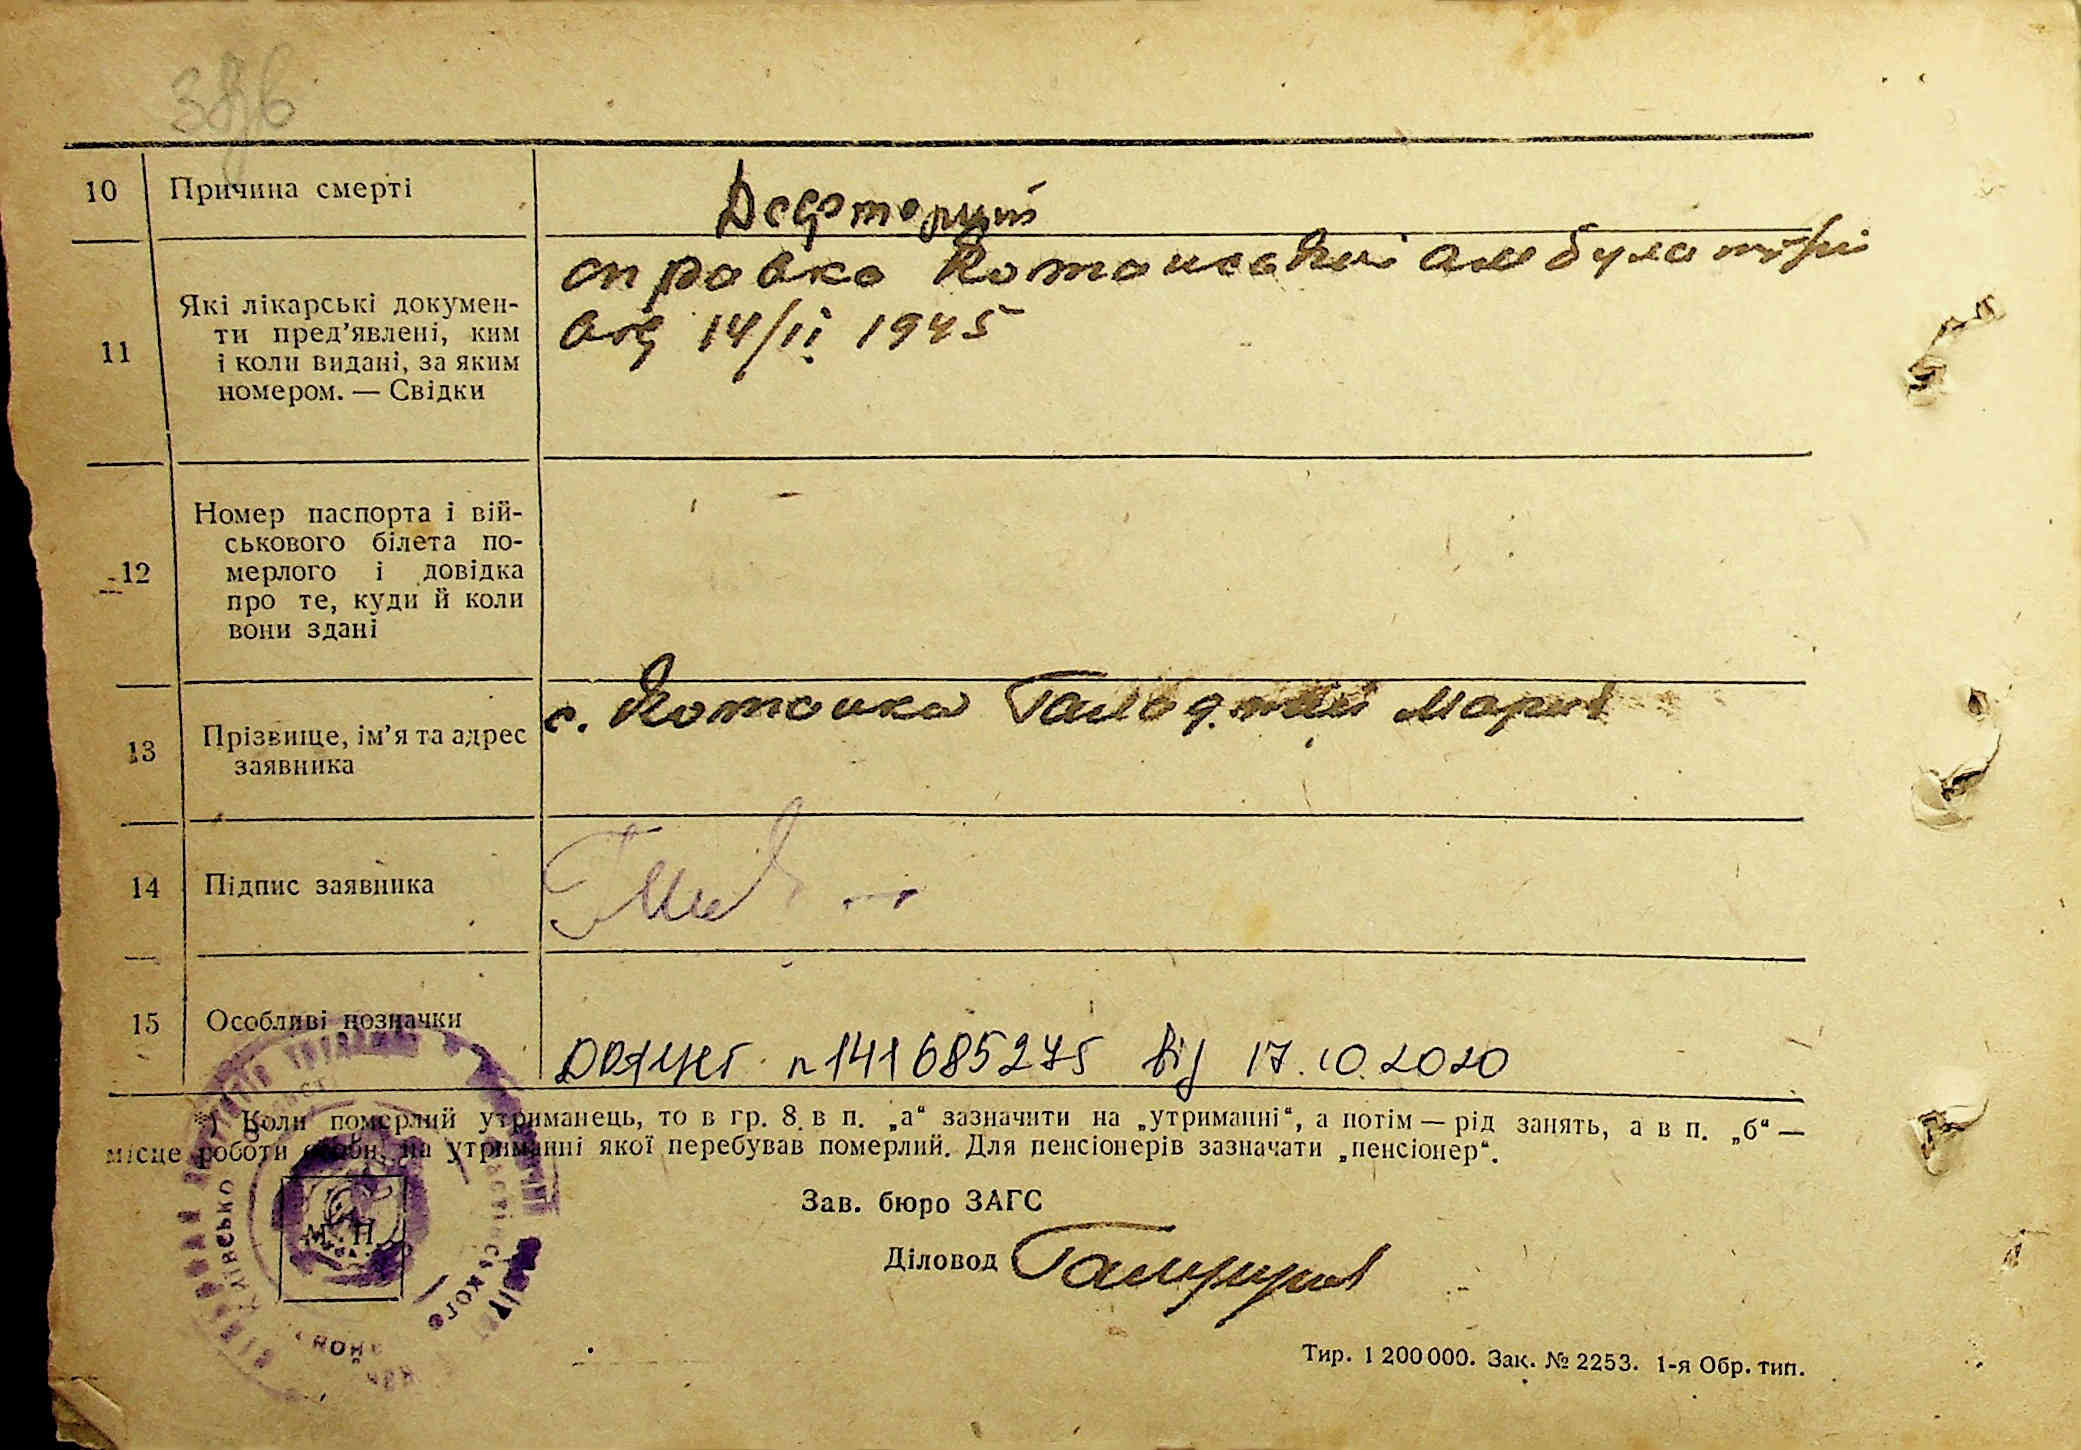 386
10 Причина смерті
Дефторуій
11 Які лікарські докумен-
ти пред'явлені, ким
і коли видані, за яким
номером. — Свідки
справка Котанської амбулаторії
від 14/ІІ 1945
12 Номер паспорта і вій-
ськового білета по-
мерлого і довідка
про те, куди й коли
вони здані
13 Прізвище, ім'я та адрес
заявника
с. Котанка Марія
14 Підпис заявника
15 Особливі позначки
n141685275 від 17.10.2020
*) Коли померлий утриманець, то в гр. 8 в п. „а“ зазначити на „утриманні“, а потім — рід занять, а в п. „б“ —
місце роботи особи, на утриманні якої перебував померлий. Для пенсіонерів зазначати „пенсіонер“.
Зав. бюро ЗАГС
М. П.
Діловод
Тир. 1 200 000. Зак. № 2253. 1-я Обр. тип.